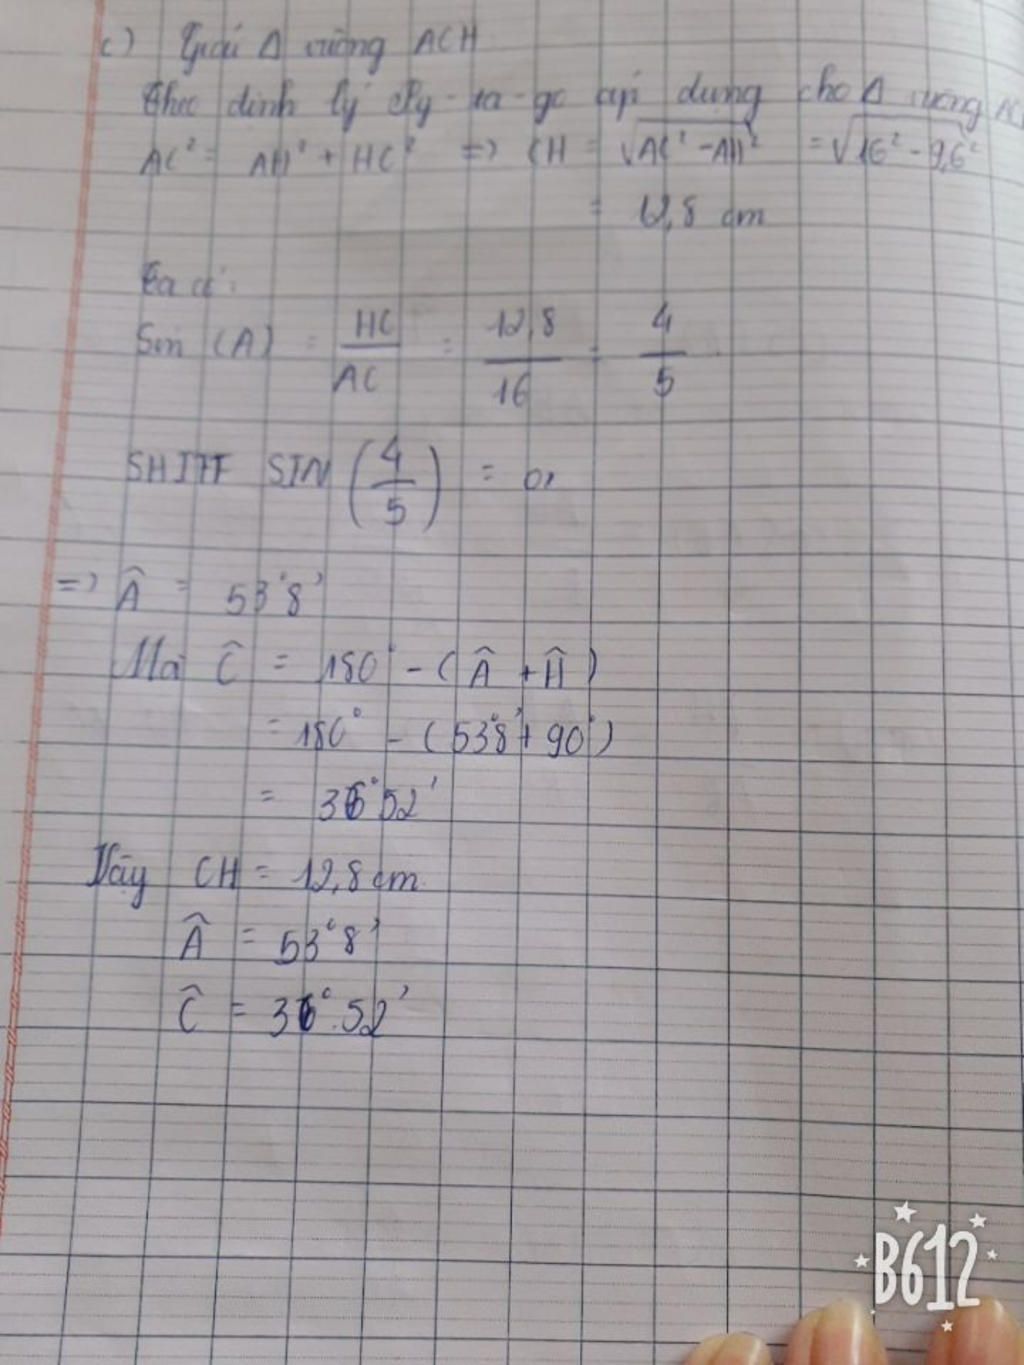 c) Giải Δ vuông ACH
Theo định lý Py-ta-go áp dụng cho Δ vuông AC
AC² = AH² + HC² => CH = √AC² - AH² = √16² - 9,6²
= 12,8 cm
Ta có:
Sin (A) = HC/AC = 12,8/16 = 4/5
SHIFT SIN (4/5) = o,,
=> Â = 53°8'
Mà Ĉ = 180° - (Â + Ĥ)
= 180° - (53°8' + 90°)
= 36°52'
Vậy CH = 12,8 cm
Â = 53°8'
Ĉ = 36°.52'
B612